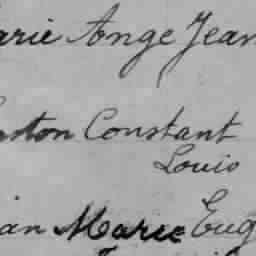 arie Ange Jean
ston Constant
Louis
an Marie Eug